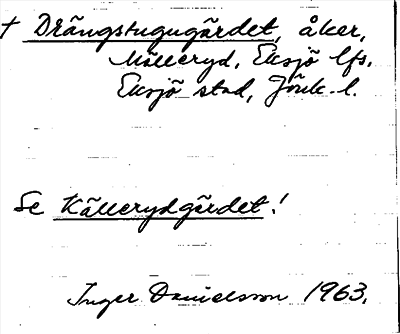 † Drängstugugärdet, åker,
Mälleryd, Eksjö lfs.
Eksjö stad, Jönk. l.
Se Källerydgärdet!
Inger Danielsson 1963.